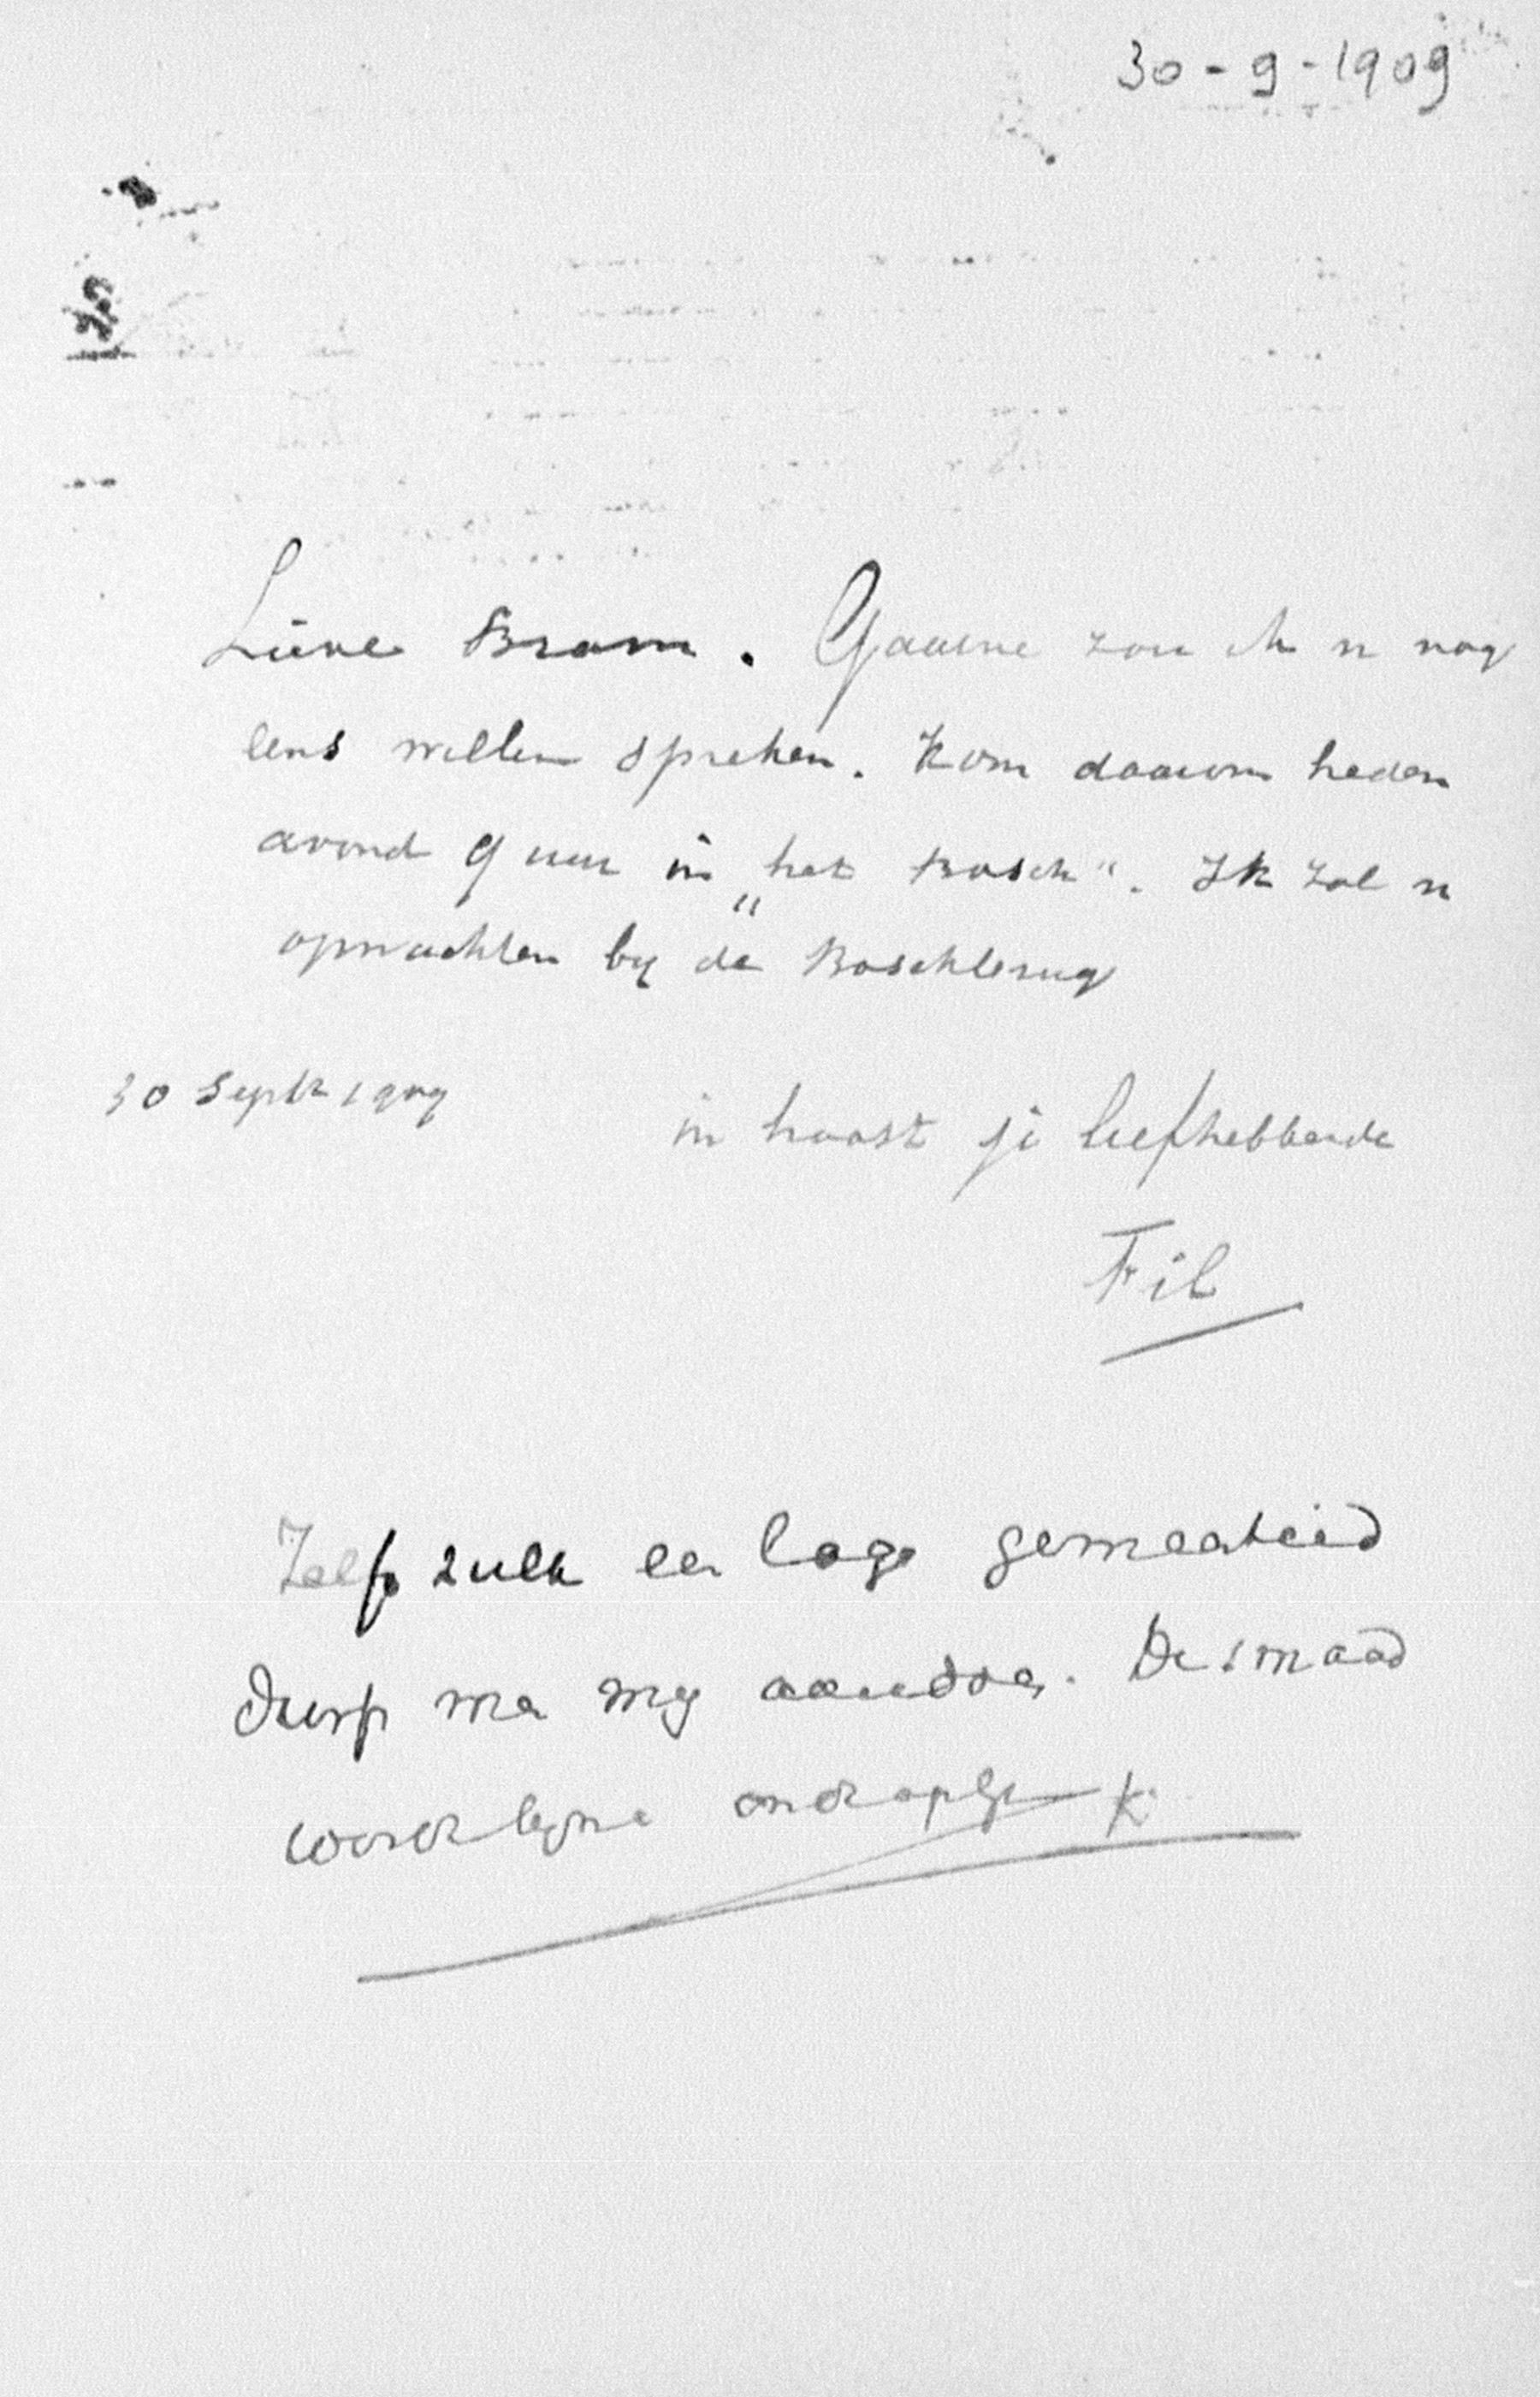 30-9-1909
Lieve Bram. Gaarne zou ik u nog
eens willen spreken. Kom daarom heden
avond 9 uur in „het Bosch“. Ik zal u
opwachten by de Boschbrug
30 Septr 1909
in haast je liefhebbende
Fil
Zelfs zulk een lage gemeenheid
durft men my aandoen. De smaad
wordt byna ondraaglijk